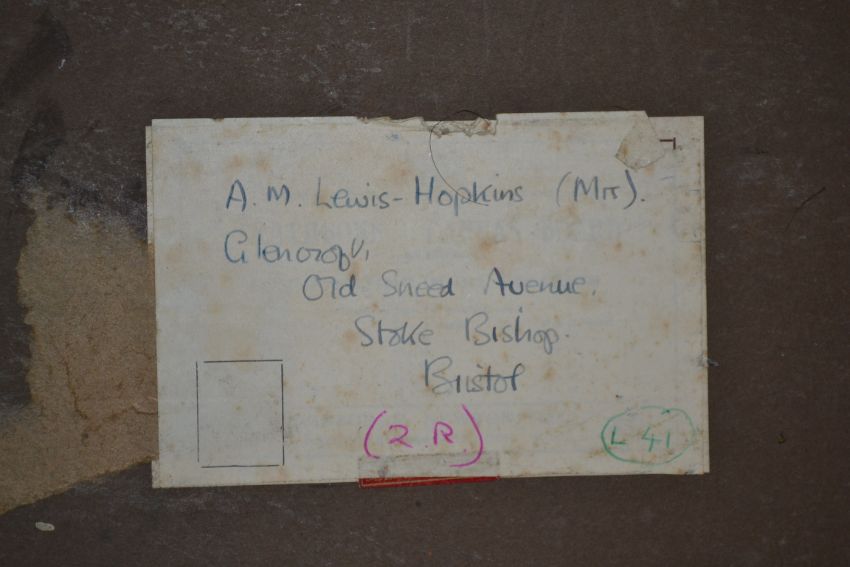 A. M. Lewis-Hopkins (MIT).
Old Sneed Avenue.
Stoke Bishop.
Bristol
(2.R.)
L 41